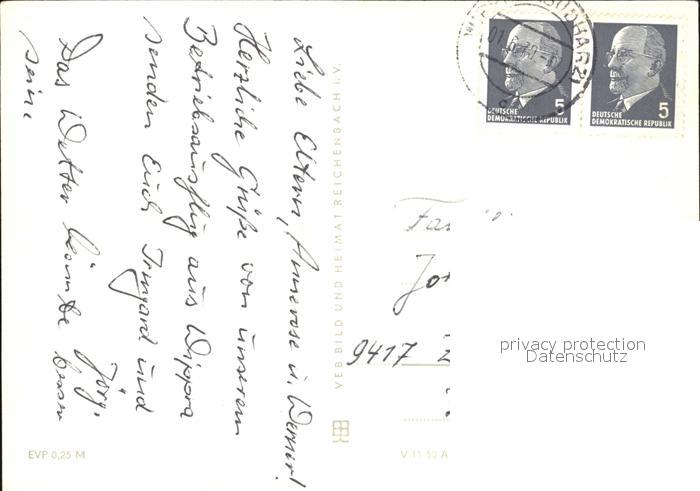 Liebe Eltern, Annerose u. Werner!
Herzliche Grüße von unserem
Betriebsausflug aus Wippra
senden Euch Irmgard und
Jörg.
Das Wetter könnte besser
sein.
VEB BILD UND HEIMAT REICHENBACH I.V.
EVP 0,25 M
V 11 50 A
DEUTSCHE
DEMOKRATISCHE REPUBLIK
5
DEUTSCHE
DEMOKRATISCHE REPUBLIK
5
Fam
9417
privacy protection
Datenschutz